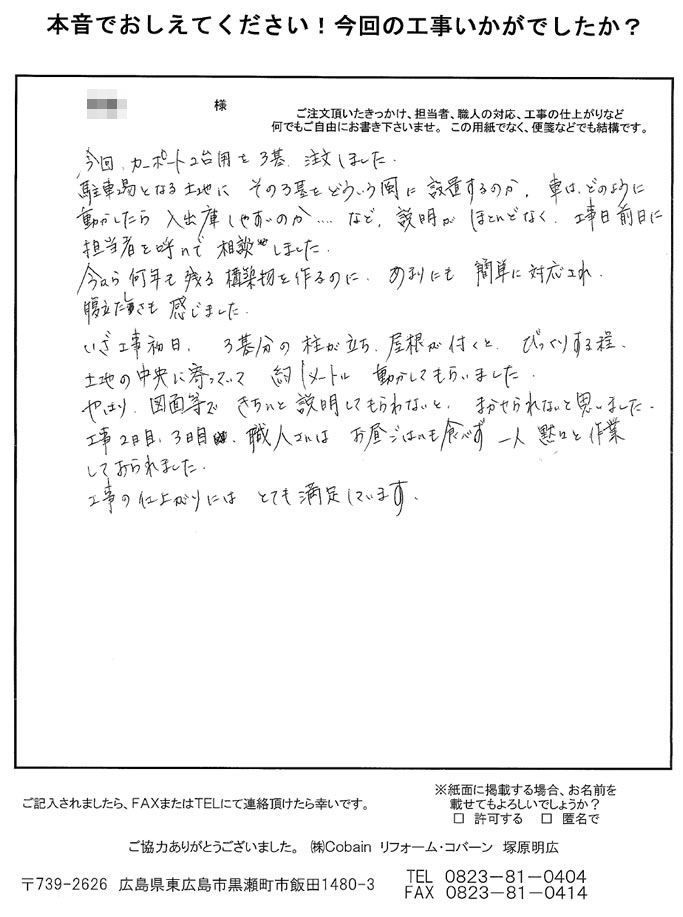 本音でおしえてください！今回の工事いかがでしたか？
様
ご注文頂いたきっかけ、担当者、職人の対応、工事の仕上がりなど
何でもご自由にお書き下さいませ。この用紙でなく、便箋などでも結構です。
今回、カーポート2台用を3基、注文しました。
駐車場となる土地に その3基をどういう風に 設置するのか、車は、どのように
動かしたら 入出庫しやすいのか‥‥など、説明が ほとんどなく、工事日前日に
担当者を呼んで 相談しました。
今から何年も残る構築物を作るのに、あまりにも 簡単に対応され、
腹立たしさも 感じました。
いざ工事初日、3基分の柱が立ち、屋根が付くと、びっくりする程、
土地の中央に寄っていて 約1メートル 動かしてもらいました。
やはり、図面等で きちんと説明してもらわないと、まかせられないと思いました。
工事2日目、3日目、職人さんは お昼ごはんも食べず 一人 黙々と作業
しておられました。
工事の仕上がりには とても満足しています。
ご記入されましたら、FAXまたはTELにて連絡頂けたら幸いです。
※紙面に掲載する場合、お名前を
載せてもよろしいでしょうか？
□ 許可する □ 匿名で
ご協力ありがとうございました。 ㈱Cobain リフォーム・コバーン 塚原明広
〒739-2626 広島県東広島市黒瀬町市飯田1480-3
TEL 0823-81-0404
FAX 0823-81-0414